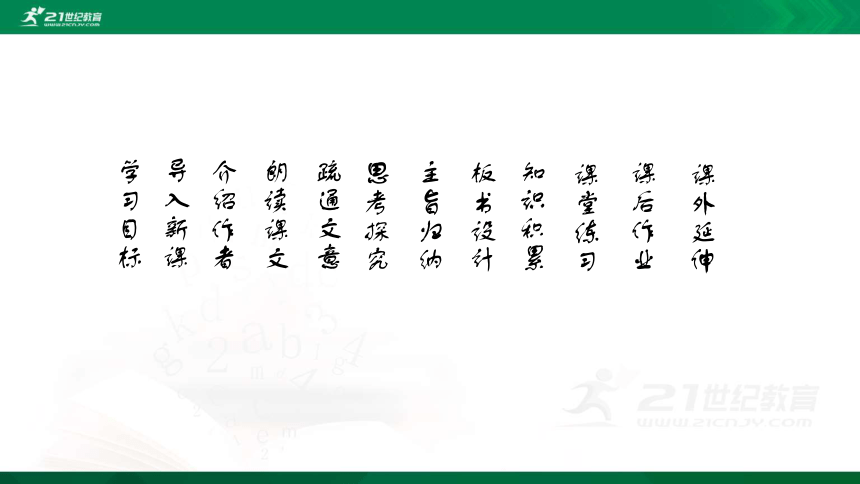 21世纪教育
WWW.21CNJY.COM
学习目标
导入新课
介绍作者
朗读课文
疏通文意
思考探究
主旨归纳
板书设计
知识积累
课堂练习
课后作业
课外延伸
21世纪教育
WWW.21CNJY.COM